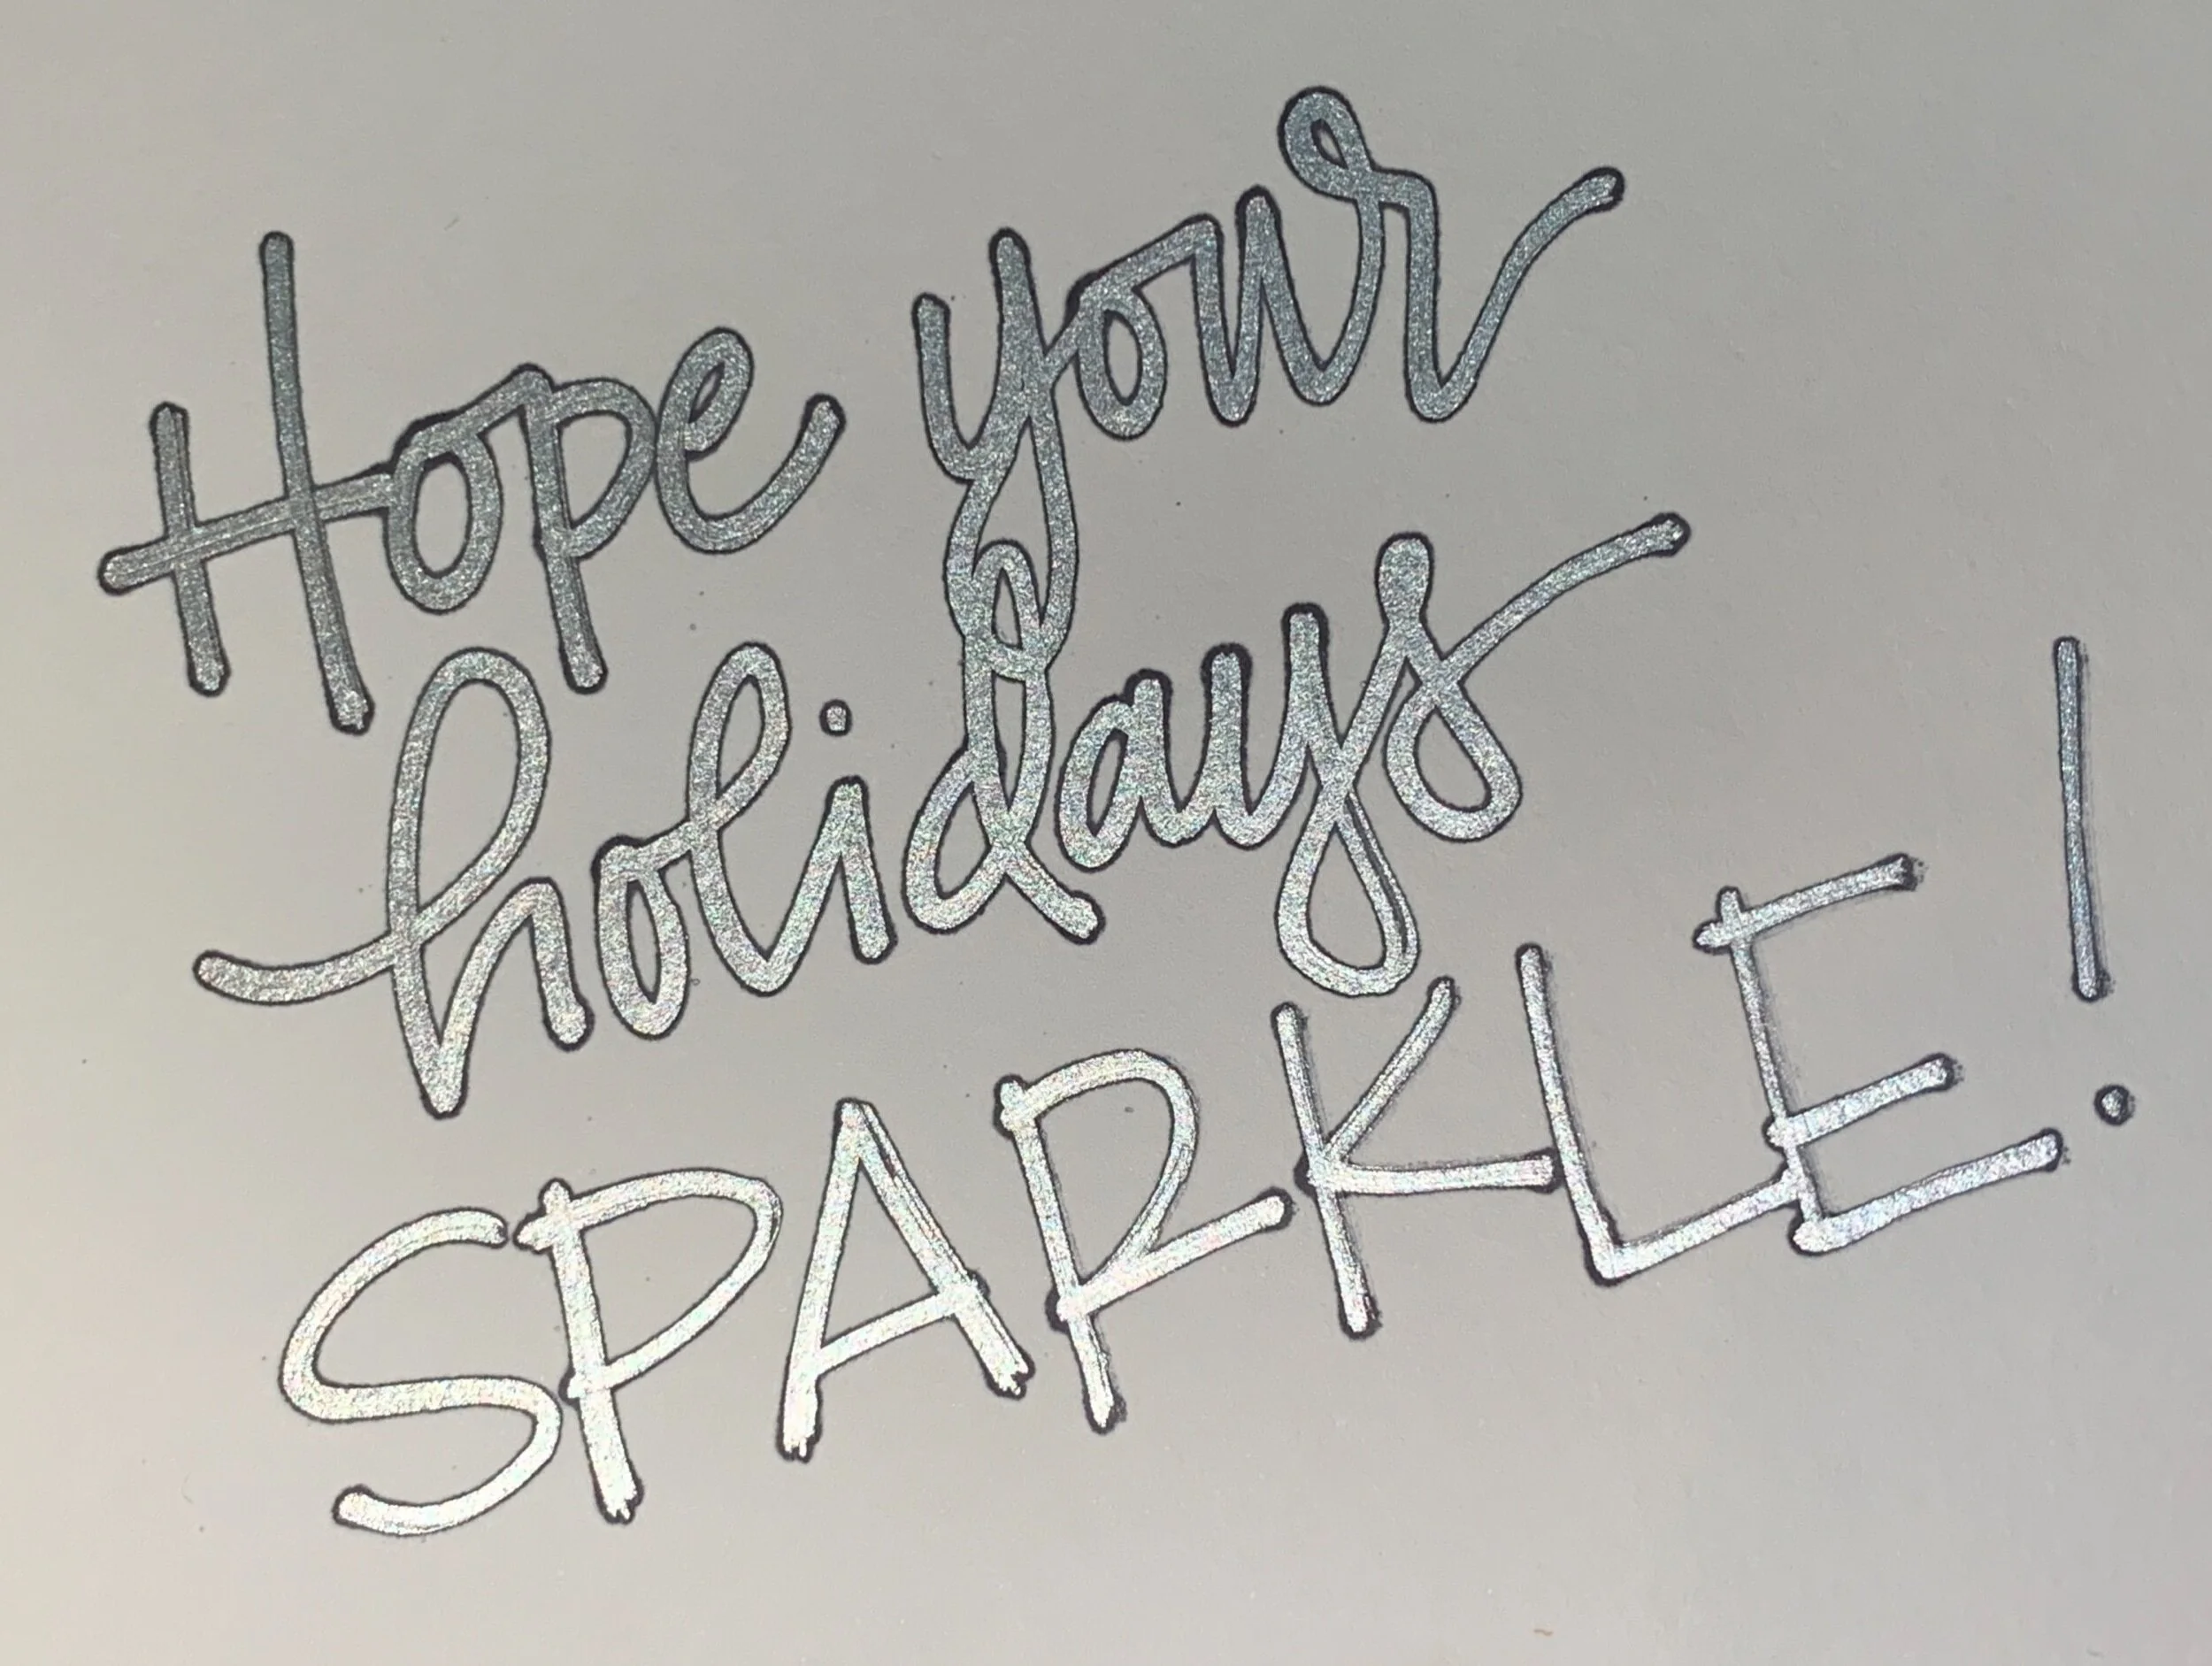 Hope your
holidays
SPARKLE!